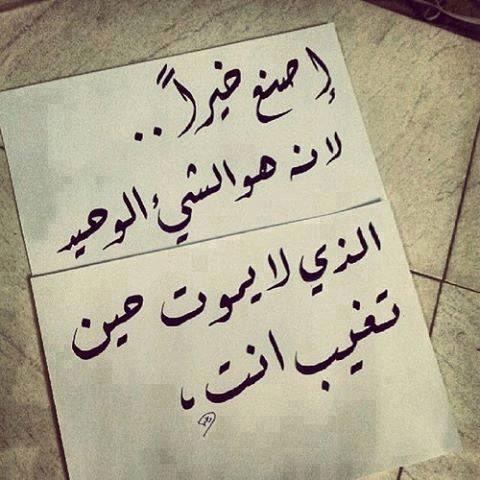 إصنع خيراً..
لانه هو الشيء الوحيد
الذي لا يموت حين
تغيب انت،